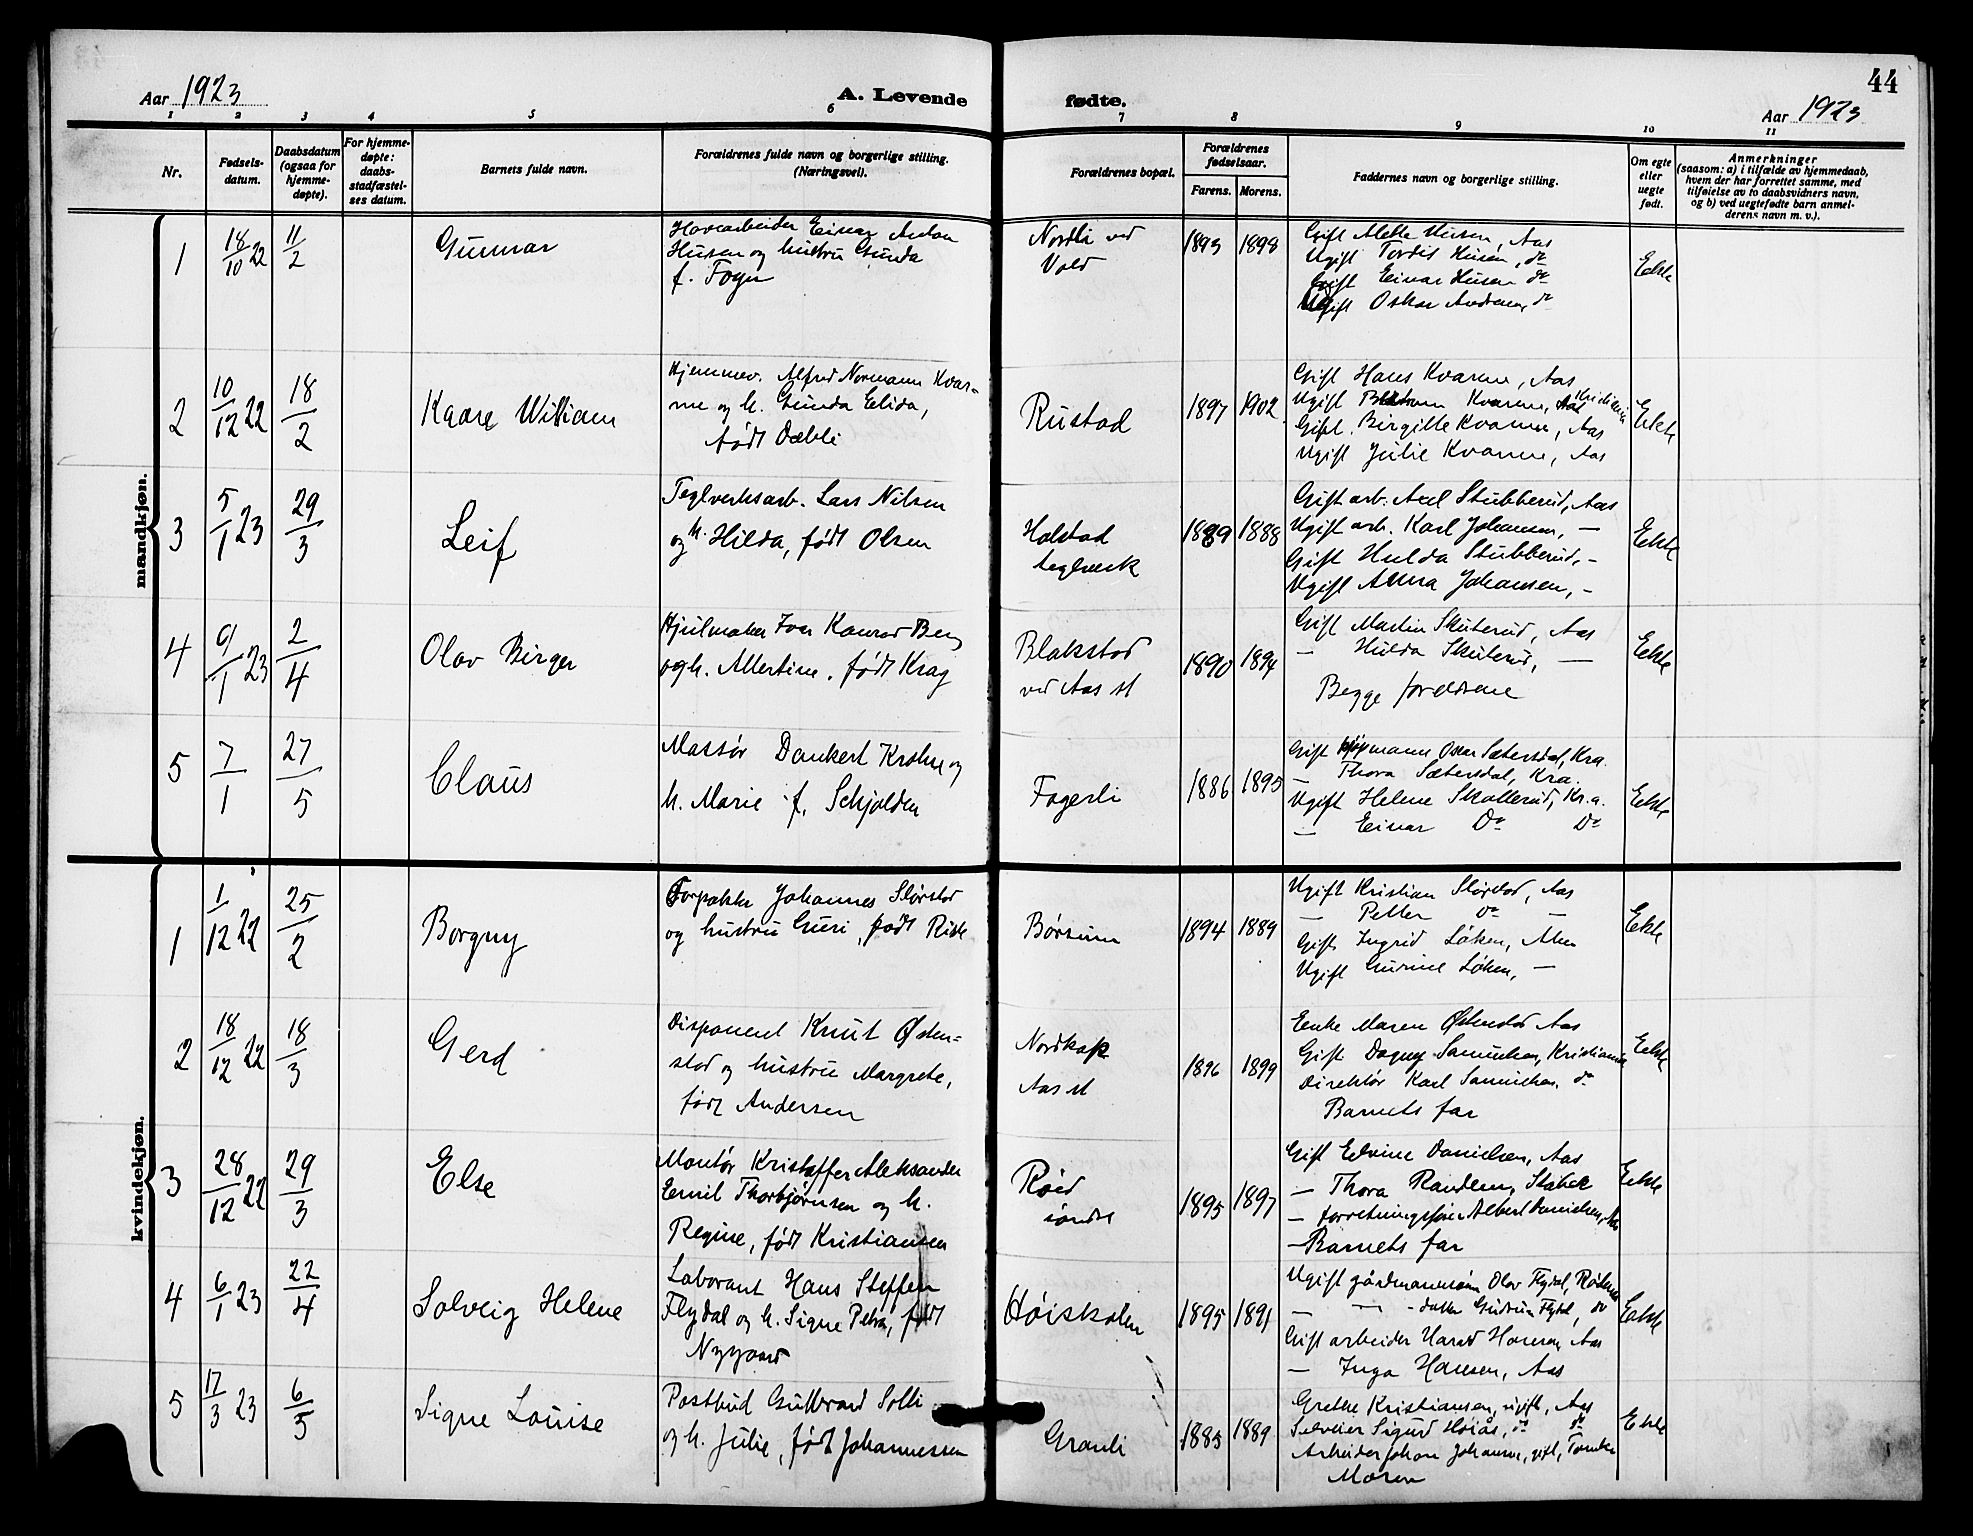 44
Aar 1923
A. Levende fødte.
Aar 1923
1 2 3 4 5 6 7 8 9 10 11
Nr.
Fødsels-
datum.
Daabsdatum
(ogsaa for
hjemme-
døpte).
For hjemme-
døpte:
daabs-
stadfæstel-
ses datum.
Barnets fulde navn.
Forældrenes fulde navn og borgerlige stilling.
(Næringsvei).
Forældrenes bopæl.
Forældrenes
fødselsaar.
Farens. Morens.
Faddernes navn og borgerlige stilling.
Om egte
eller
uegte
født.
Anmerkninger
(saasom: a) i tilfælde av hjemmedaab,
hvem der har forrettet samme, med
tilføielse av to daabsvidners navn,
og b) ved uegtefødte barn anmel-
derens navn m. v.).
mandkjøn.
1
18/10 22
11/2
Gunnar
Havearbeider Einar Anton
Husen og hustru Gunda
f. Foger
Nordli ved
Vold
1893 1898
Gift Alette Husen, Aas
Ugift Tordis Husen, do
Gift Einar Husen do
Ugift Oskar Andresen, do
Ekte
2
10/12 22
18/2
Kaare William
Hjemmev. Alfred Normann Kvar-
me og h. Gunda Elida,
født Dæhli
Rustad
1897 1902
Gift Hans Kvarme, Aas
Ugift Kvarme, Kristiania
Gift. Birgitte Kvarme, Aas
Ugift Julie Kvarme, Aas
Ekte
3
5/1 23
29/3
Leif
Teglverksarb. Lars Nilsen
og h. Hilda, født Olsen
Holstad
teglverk
1889 1888
Gift arb. Axel Stubberud, Aas
Ugift arb. Karl Johansen, —
Gift Hulda Stubberud, -
Ugift Anna Johansen, -
Ekte
4
9/1 23
2/4
Olav Birger
Hjulmaker Ivar Konrad Berg
og h. Albertine, født Krag
Blakstad
ved Aas st
1890 1894
Gift Martin Skuterud, Aas
— Hulda Skuterud, —
Begge foreldrene
Ekte
5
7/1
27/5
Claus
Massør Dankert Krohn og
h. Marie f. Schjolden
Fagerli
1886 1895
Gift kjøpmann Oscar Sætersdal, Kra.
— Thora Sætersdal, Kra.
Ugift Helene Skollerud, Kr.a.
— Einar Do Do
Ekte
kvindekjøn.
1
1/12 22
25/2
Borguy
Forpakter Johannes Slørstad
og hustru Guri, født Rise
Børsum
1894 1889
Ugift Kristian Slørstad, Aas
— Petter do —
Gift Ingrid Løken,
Ugift Gurine Løken, —
Ekte
2
18/12 22
18/3
Gerd
Disponent Knut Østen-
stad og hustru Margrete,
født Andersen
Nordkap
Aas st
1896 1899
Enke Maren Østenstad Aas
Gift Dagny Samuelsen, Kristiania
Direktør Karl Samuelsen, do
Barnets far
Ekte
3
28/12 22
29/3
Else
Montør Kristoffer Aleksander
Emil Thorbjørnsen og h.
Regine, født Kristiansen
Røed
søndre
1895 1897
Gift Edvine Danielsen, Aas
— Thora Randem, Stabæk
— forretningsfører Albert Danielsen, Aas
— Barnets far
Ekte
4
6/1 23
22/4
Solveig Helene
Laborant Hans Steffen
Flydal og h. Signe Petra, født
Nygaard
Høiskolen
1895 1891
Ugift gårdmannssøn Olav Flydal,
— — - datter Gudrun Flydal, do
Gift arbeider Harald Hansen, Aas
— Inga Hansen, Aas
Ekte
5
17/3 23
6/5
Signe Louise
Postbud Gulbrand Solli
og h. Julie, født Johannessen
Granli
1885 1889
Grethe Kristiansen, ugift, Aas
Selveier Sigurd Høiås, do do
Arbeider Johan Johansen, gift,
Moren
Ekte